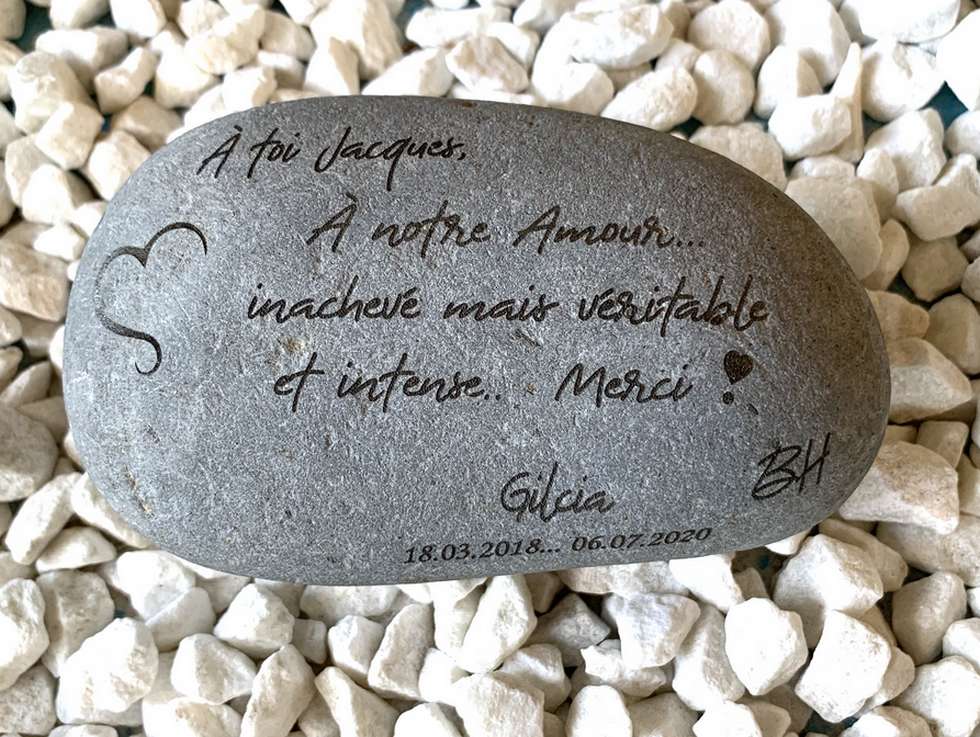 À toi Jacques,
À notre Amour...
inachevé mais véritable
et intense.. Merci !
Gilcia
BH
18.03.2018... 06.07.2020